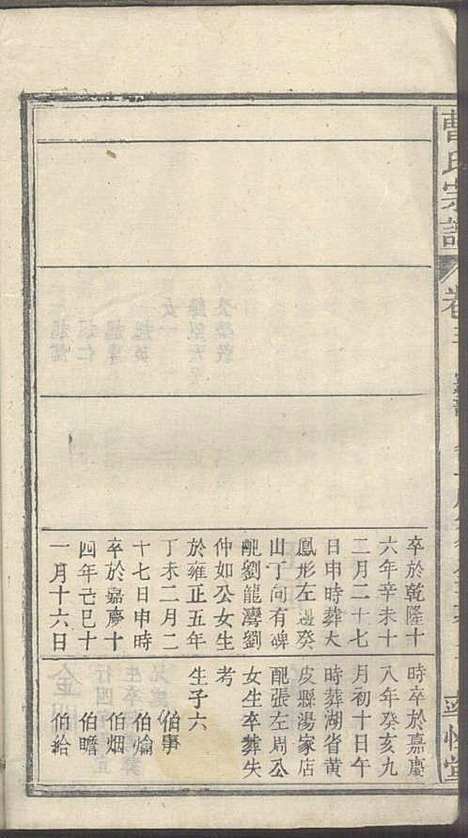 曹氏宗譜
卷三
卒於乾隆十
六年辛未十
二月二十七
日申時葬大
鳳形左邊癸
山丁向有碑
配劉龍灣劉
仲如公女生
於雍正五年
丁未二月二
十七日申時
卒於嘉慶十
四年己巳十
一月十六日
時卒於嘉慶
八年癸亥九
月初十日午
時葬湖省黃
皮縣湯家店
配張左周公
女生卒葬失
考
生子六
伯事
伯爚
伯烟
伯瞻
伯給